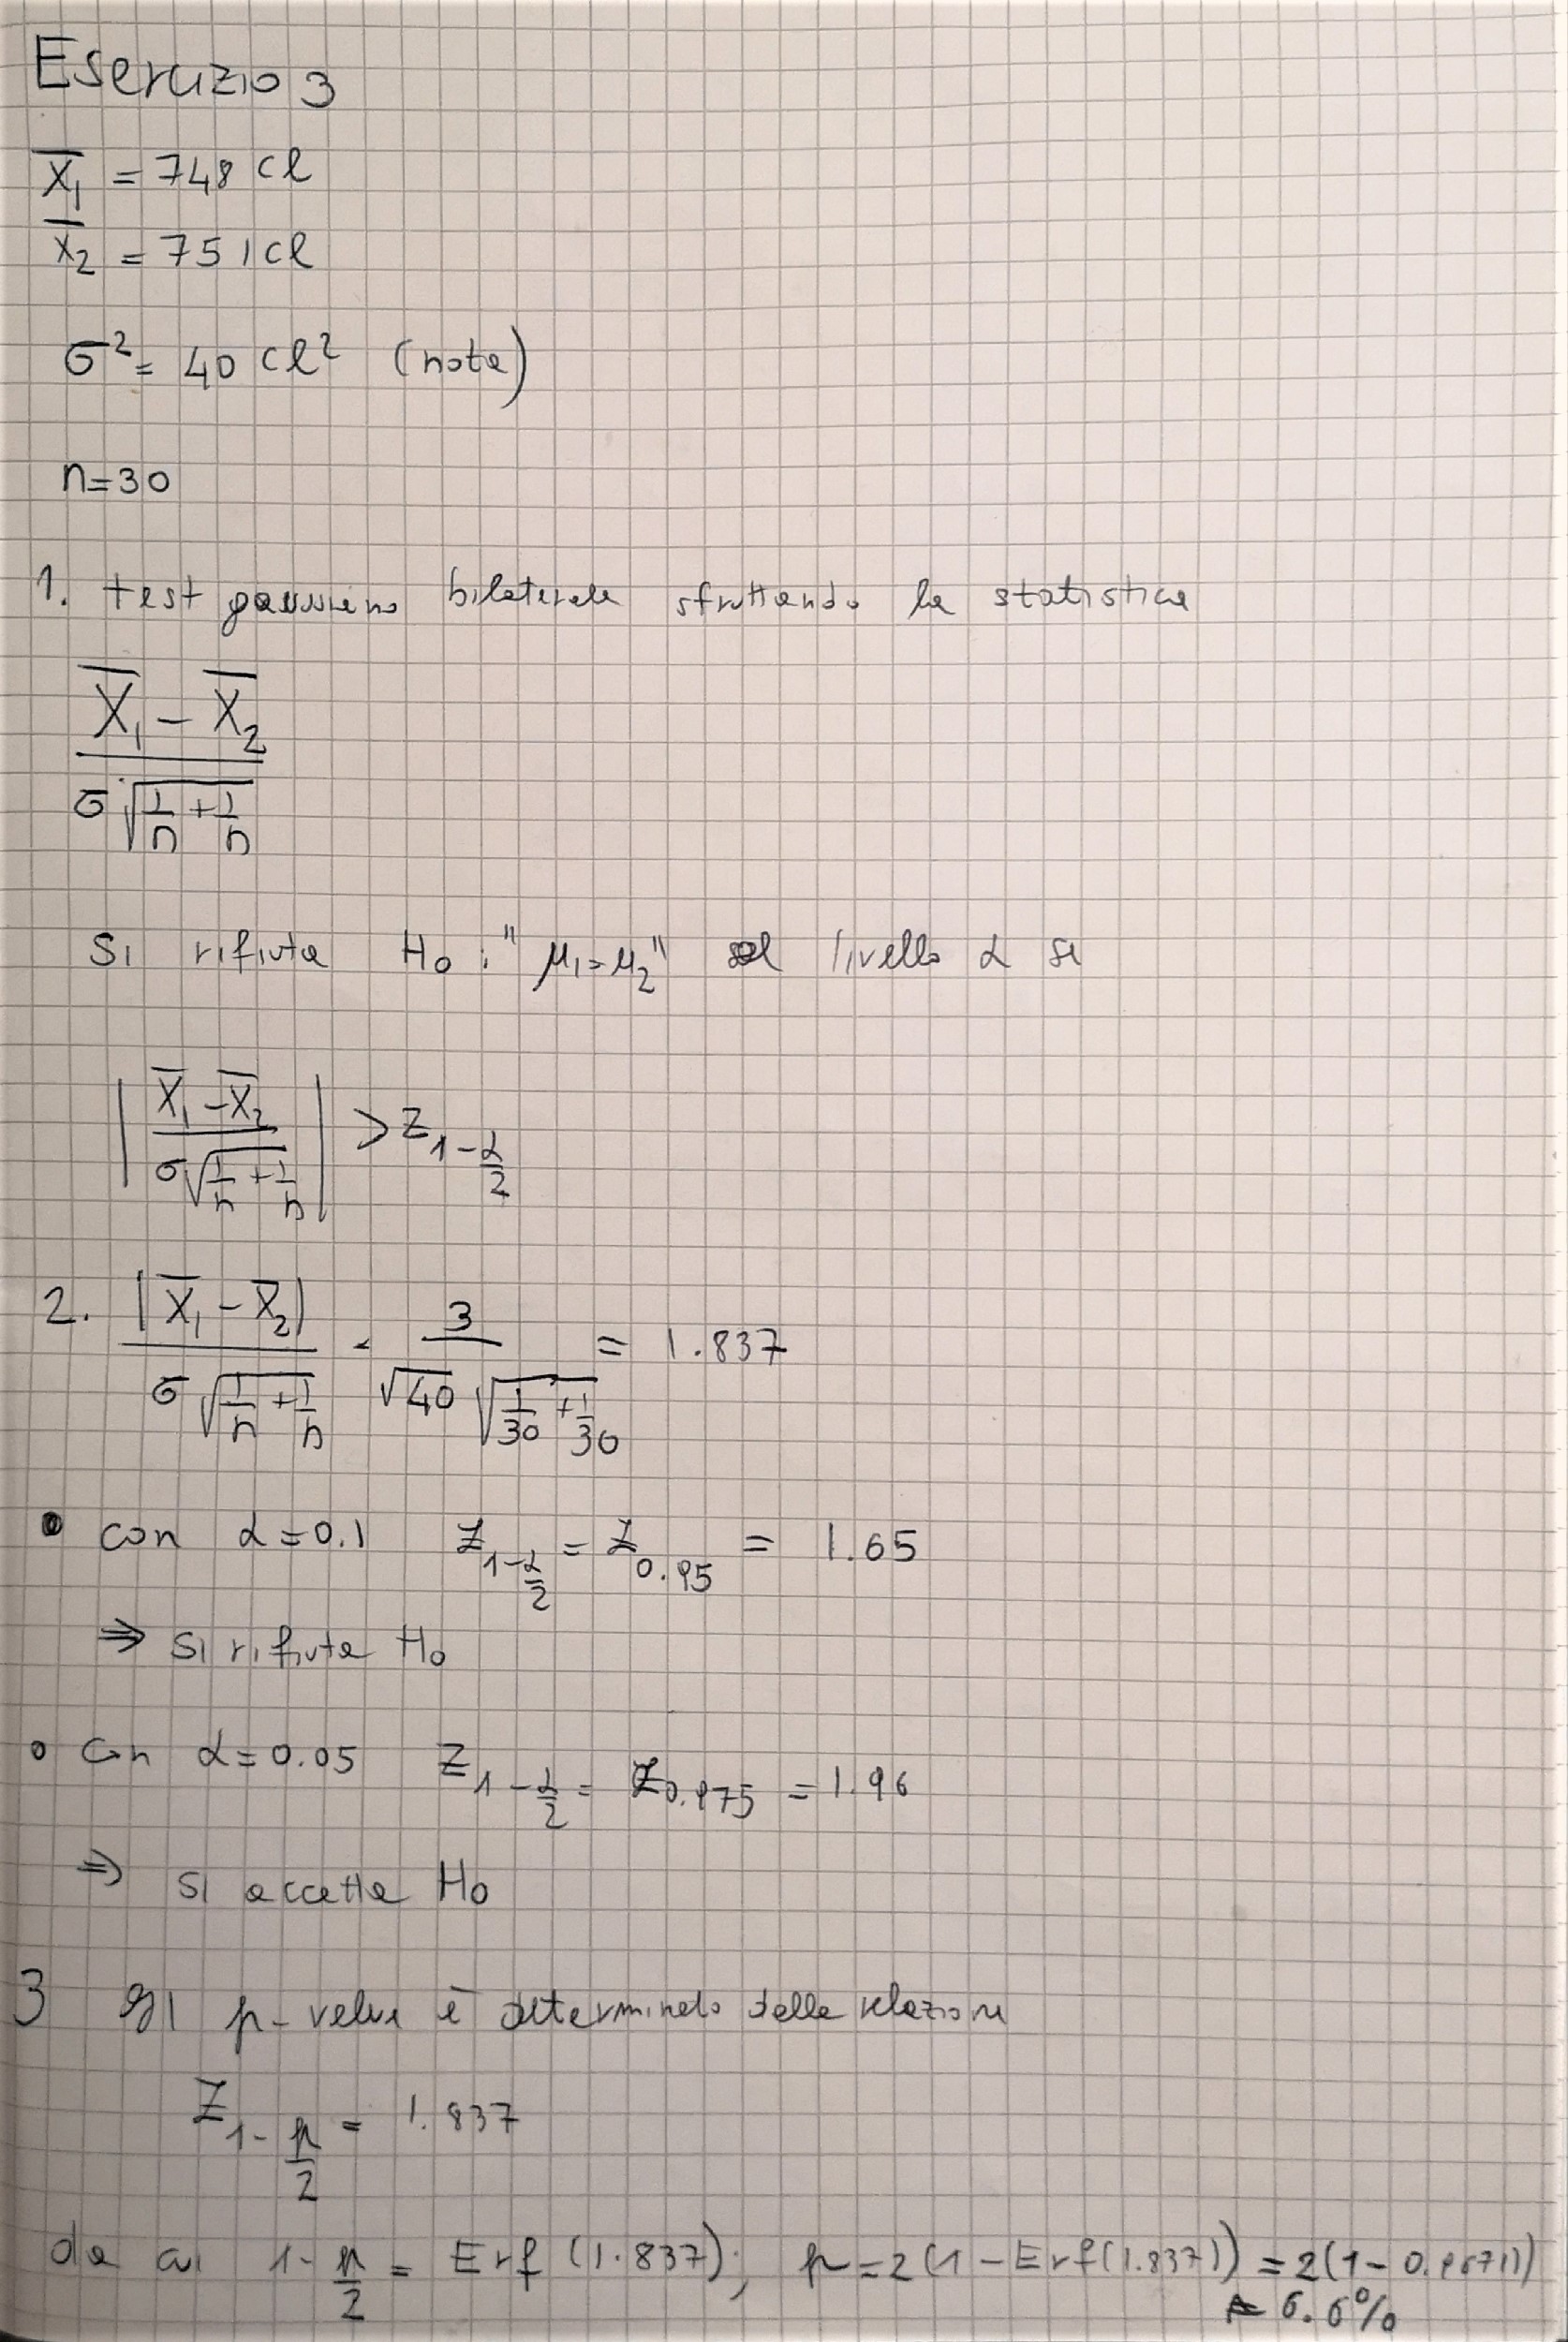 Esercizio 3
X̄₁ = 748 cl
X̄₂ = 751 cl
σ² = 40 cl² (nota)
n=30
1. test gaussiano bilaterale sfruttando la statistica
(X̄₁ - X̄₂) / (σ √(1/n + 1/n))
Si rifiuta H₀ : "μ₁=μ₂" al livello α se
| (X̄₁ - X̄₂) / (σ √(1/n + 1/n)) | > z_{1-α/2}
2. |X̄₁ - X̄₂| / (σ √(1/n + 1/n)) = 3 / (√40 √(1/30 + 1/30)) = 1.837
• con α=0.1 z_{1-α/2} = z_{0.95} = 1.65
⇒ si rifiuta H₀
• con α=0.05 z_{1-α/2} = z_{0.975} = 1.96
⇒ si accetta H₀
3 Il p-value è determinato dalla relazione
z_{1-p/2} = 1.837
da cui 1-p/2 = Erf (1.837); p=2(1-Erf(1.837)) = 2(1-0.9671))
= 6.6%